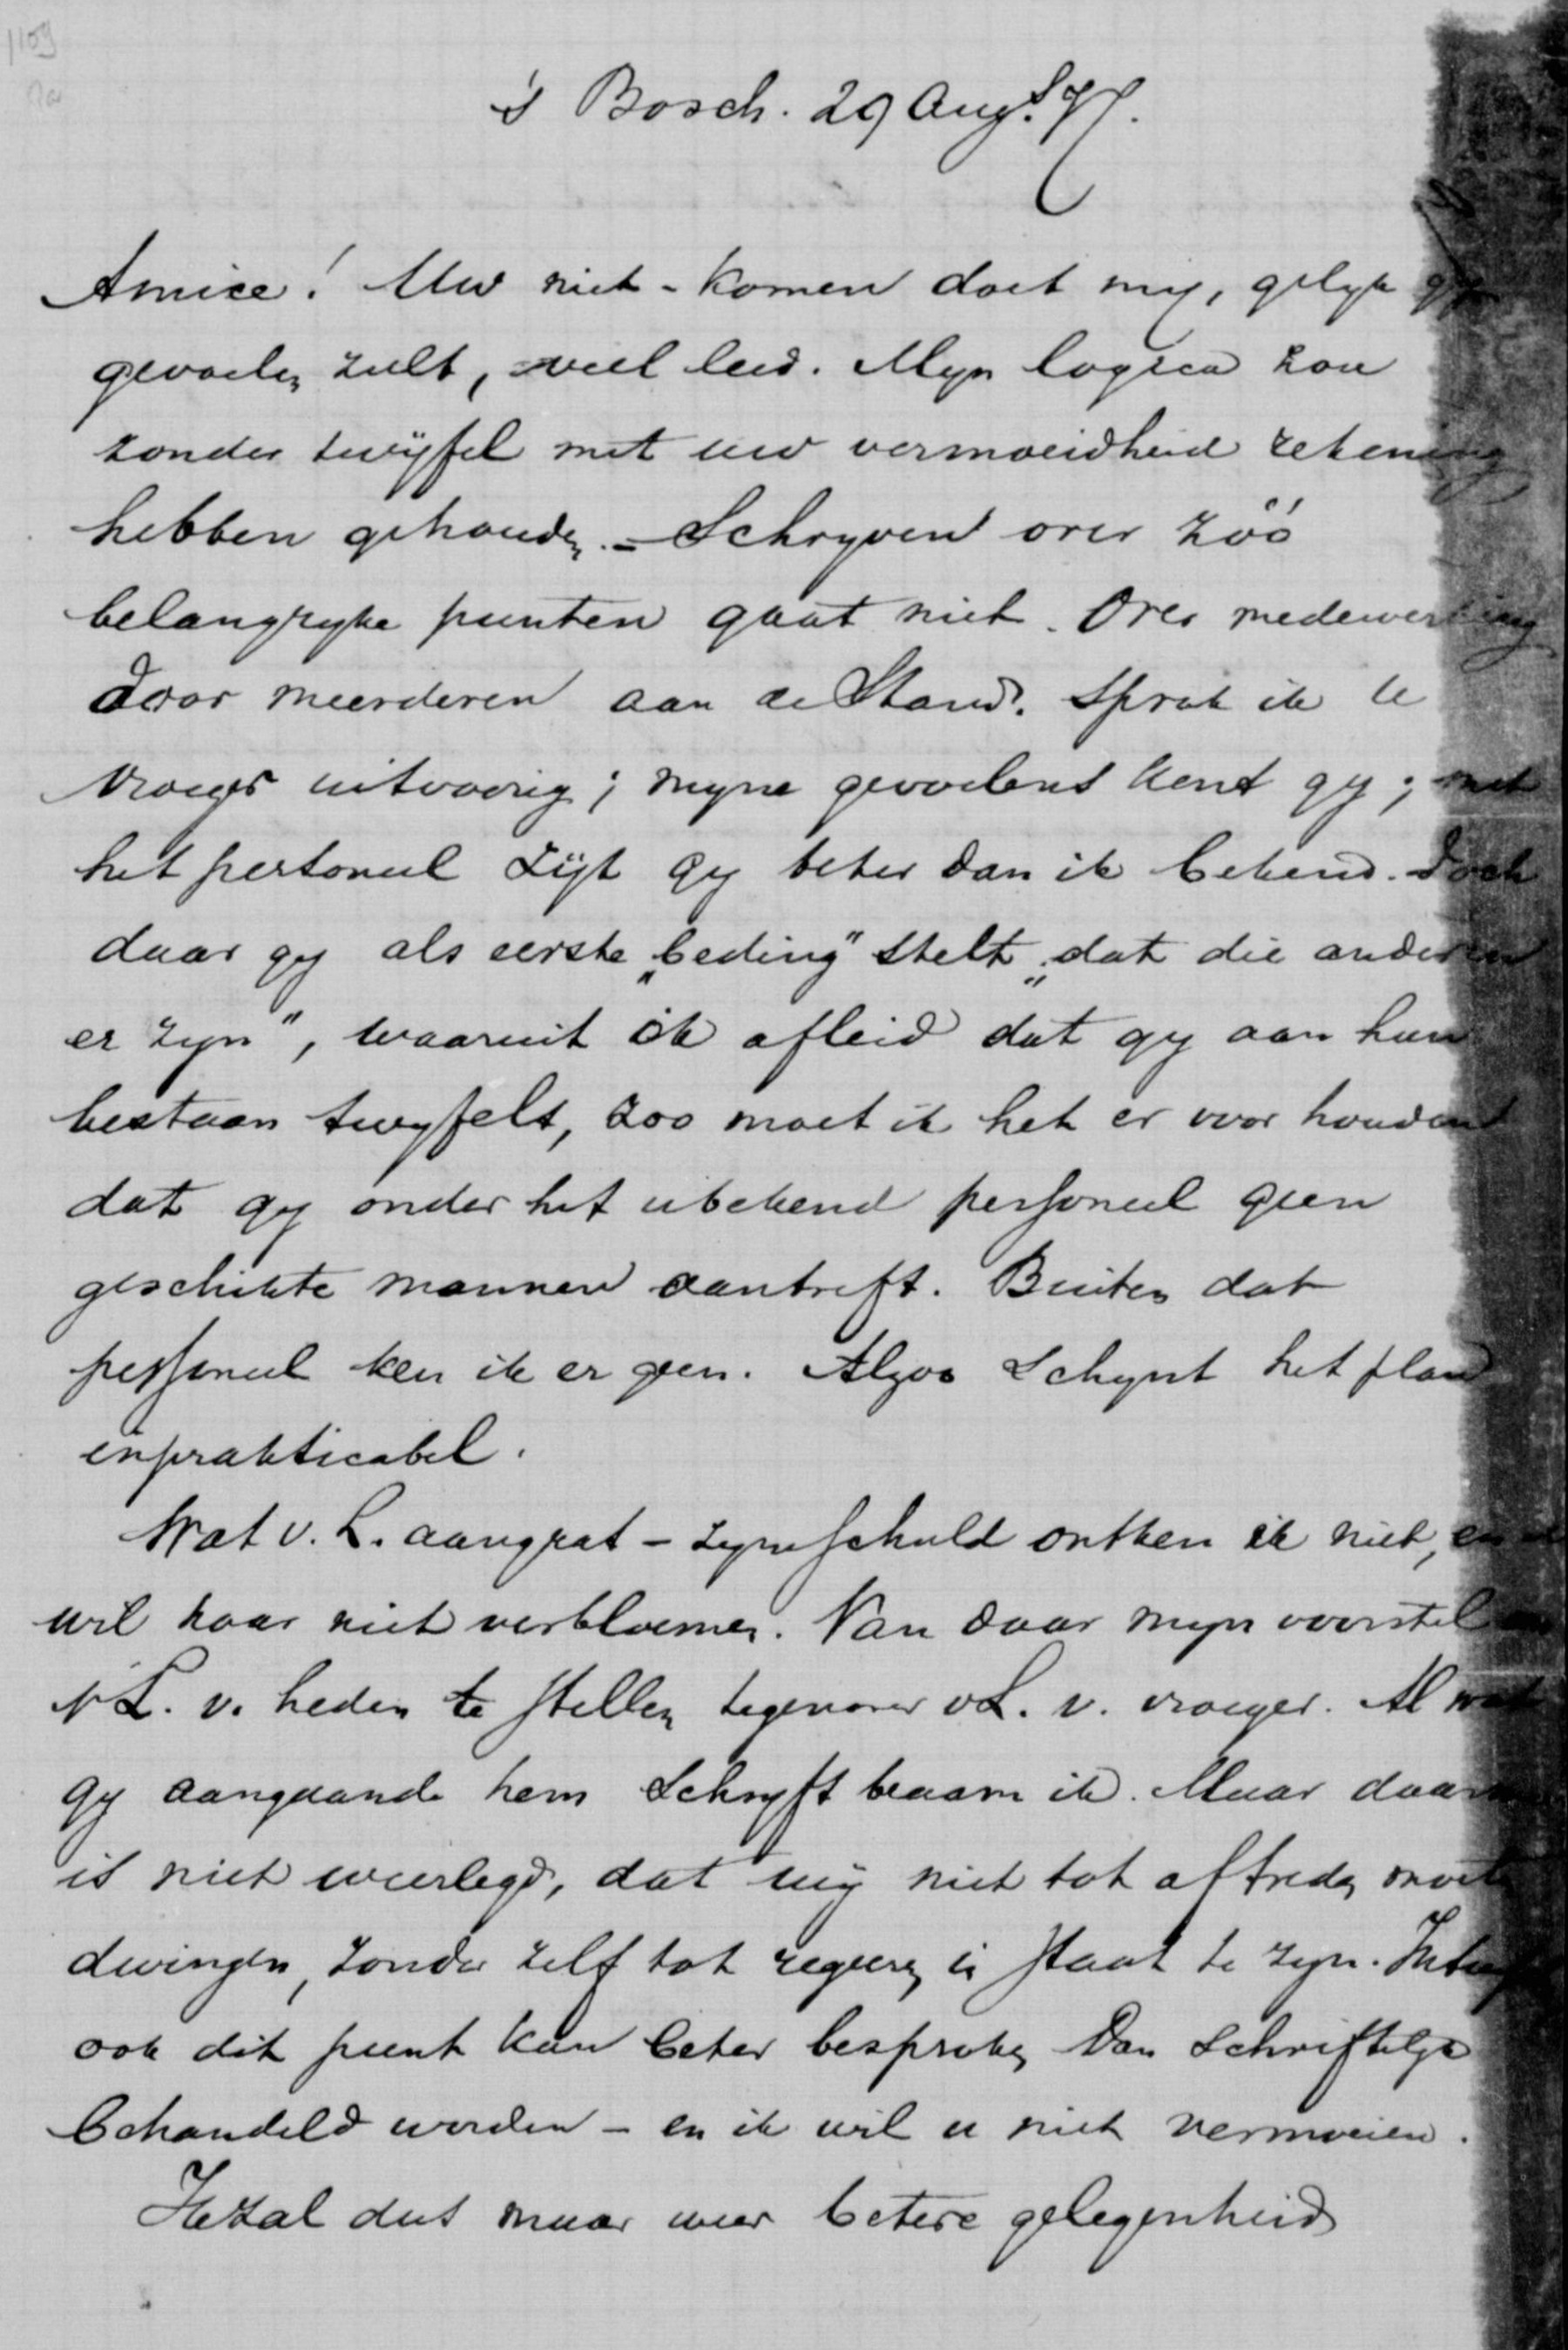 1109
's Bosch. 29 Aug.
Amice! Uw niet-komen doet my, gelyk gy
gevoelen zult, veel leed. Myn logica zou
zonder twyfel met uw vermoeidheid rekening
hebben gehouden. - Schryven over zóó
belangryke punten gaat niet. Over medewerking
door meerderen aan de Stand. sprak ik U
vroeger uitvoerig; myne gevoelens kent gy; met
het personeel zyt gy beter dan ik bekend. Doch
daar gy als eerste „beding" stelt „dat die anderen
er zyn", waaruit ik afleid dat gy aan hun
bestaan twyfelt, zoo moet ik het er voor houden
dat gy onder het u bekend personeel geen
geschikte mannen aantreft. Buiten dat
personeel ken ik er geen. Alzoo schynt het plan
inpraktikabel.
Wat v. L. aangaat - zyne schuld ontken ik niet, en
wil haar niet verbloemen. Van daar myn voorstel om
v L. v. heden te stellen tegenover v L. v. vroeger. Al wat
gy aangaande hem schryft beaam ik. Maar daarm
is niet weerlegd, dat wy niet tot aftreden moeten
dwingen, zonder zelf tot regeren in staat te zyn.
ook dit punt kan beter besproken dan schriftelyk
behandeld worden - en ik wil u niet vermoeien.
Ik zal dus maar weer betere gelegenheid